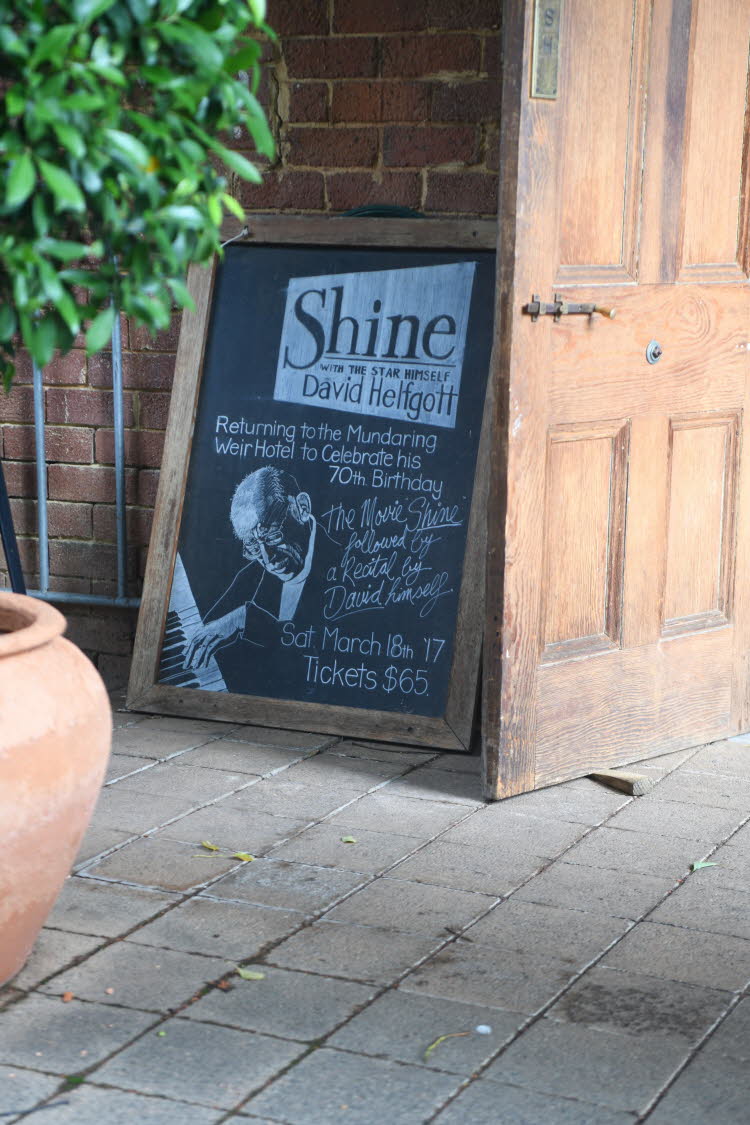 Shine
WITH THE STAR HIMSELF
David Helfgott
Returning to the Mundaring
Weir Hotel to Celebrate his
70th Birthday
The Movie Shine
followed by
a Recital by
David himself.
Sat. March 18th '17
Tickets $65.